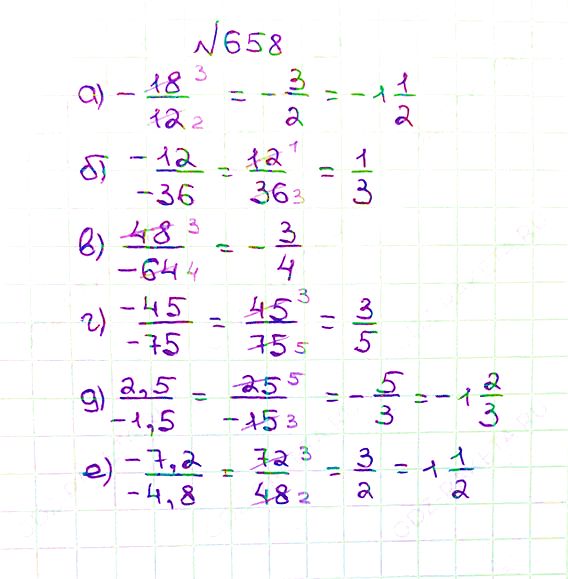 №658
а) -18 3/12 2 = -3/2 = -1 1/2
б) -12/-36 = 12 1/36 3 = 1/3
в) 48 3/-64 4 = -3/4
г) -45/-75 = 45 3/75 5 = 3/5
д) 2,5/-1,5 = 25 5/-15 3 = -5/3 = -1 2/3
е) -7,2/-4,8 = 72 3/48 2 = 3/2 = 1 1/2